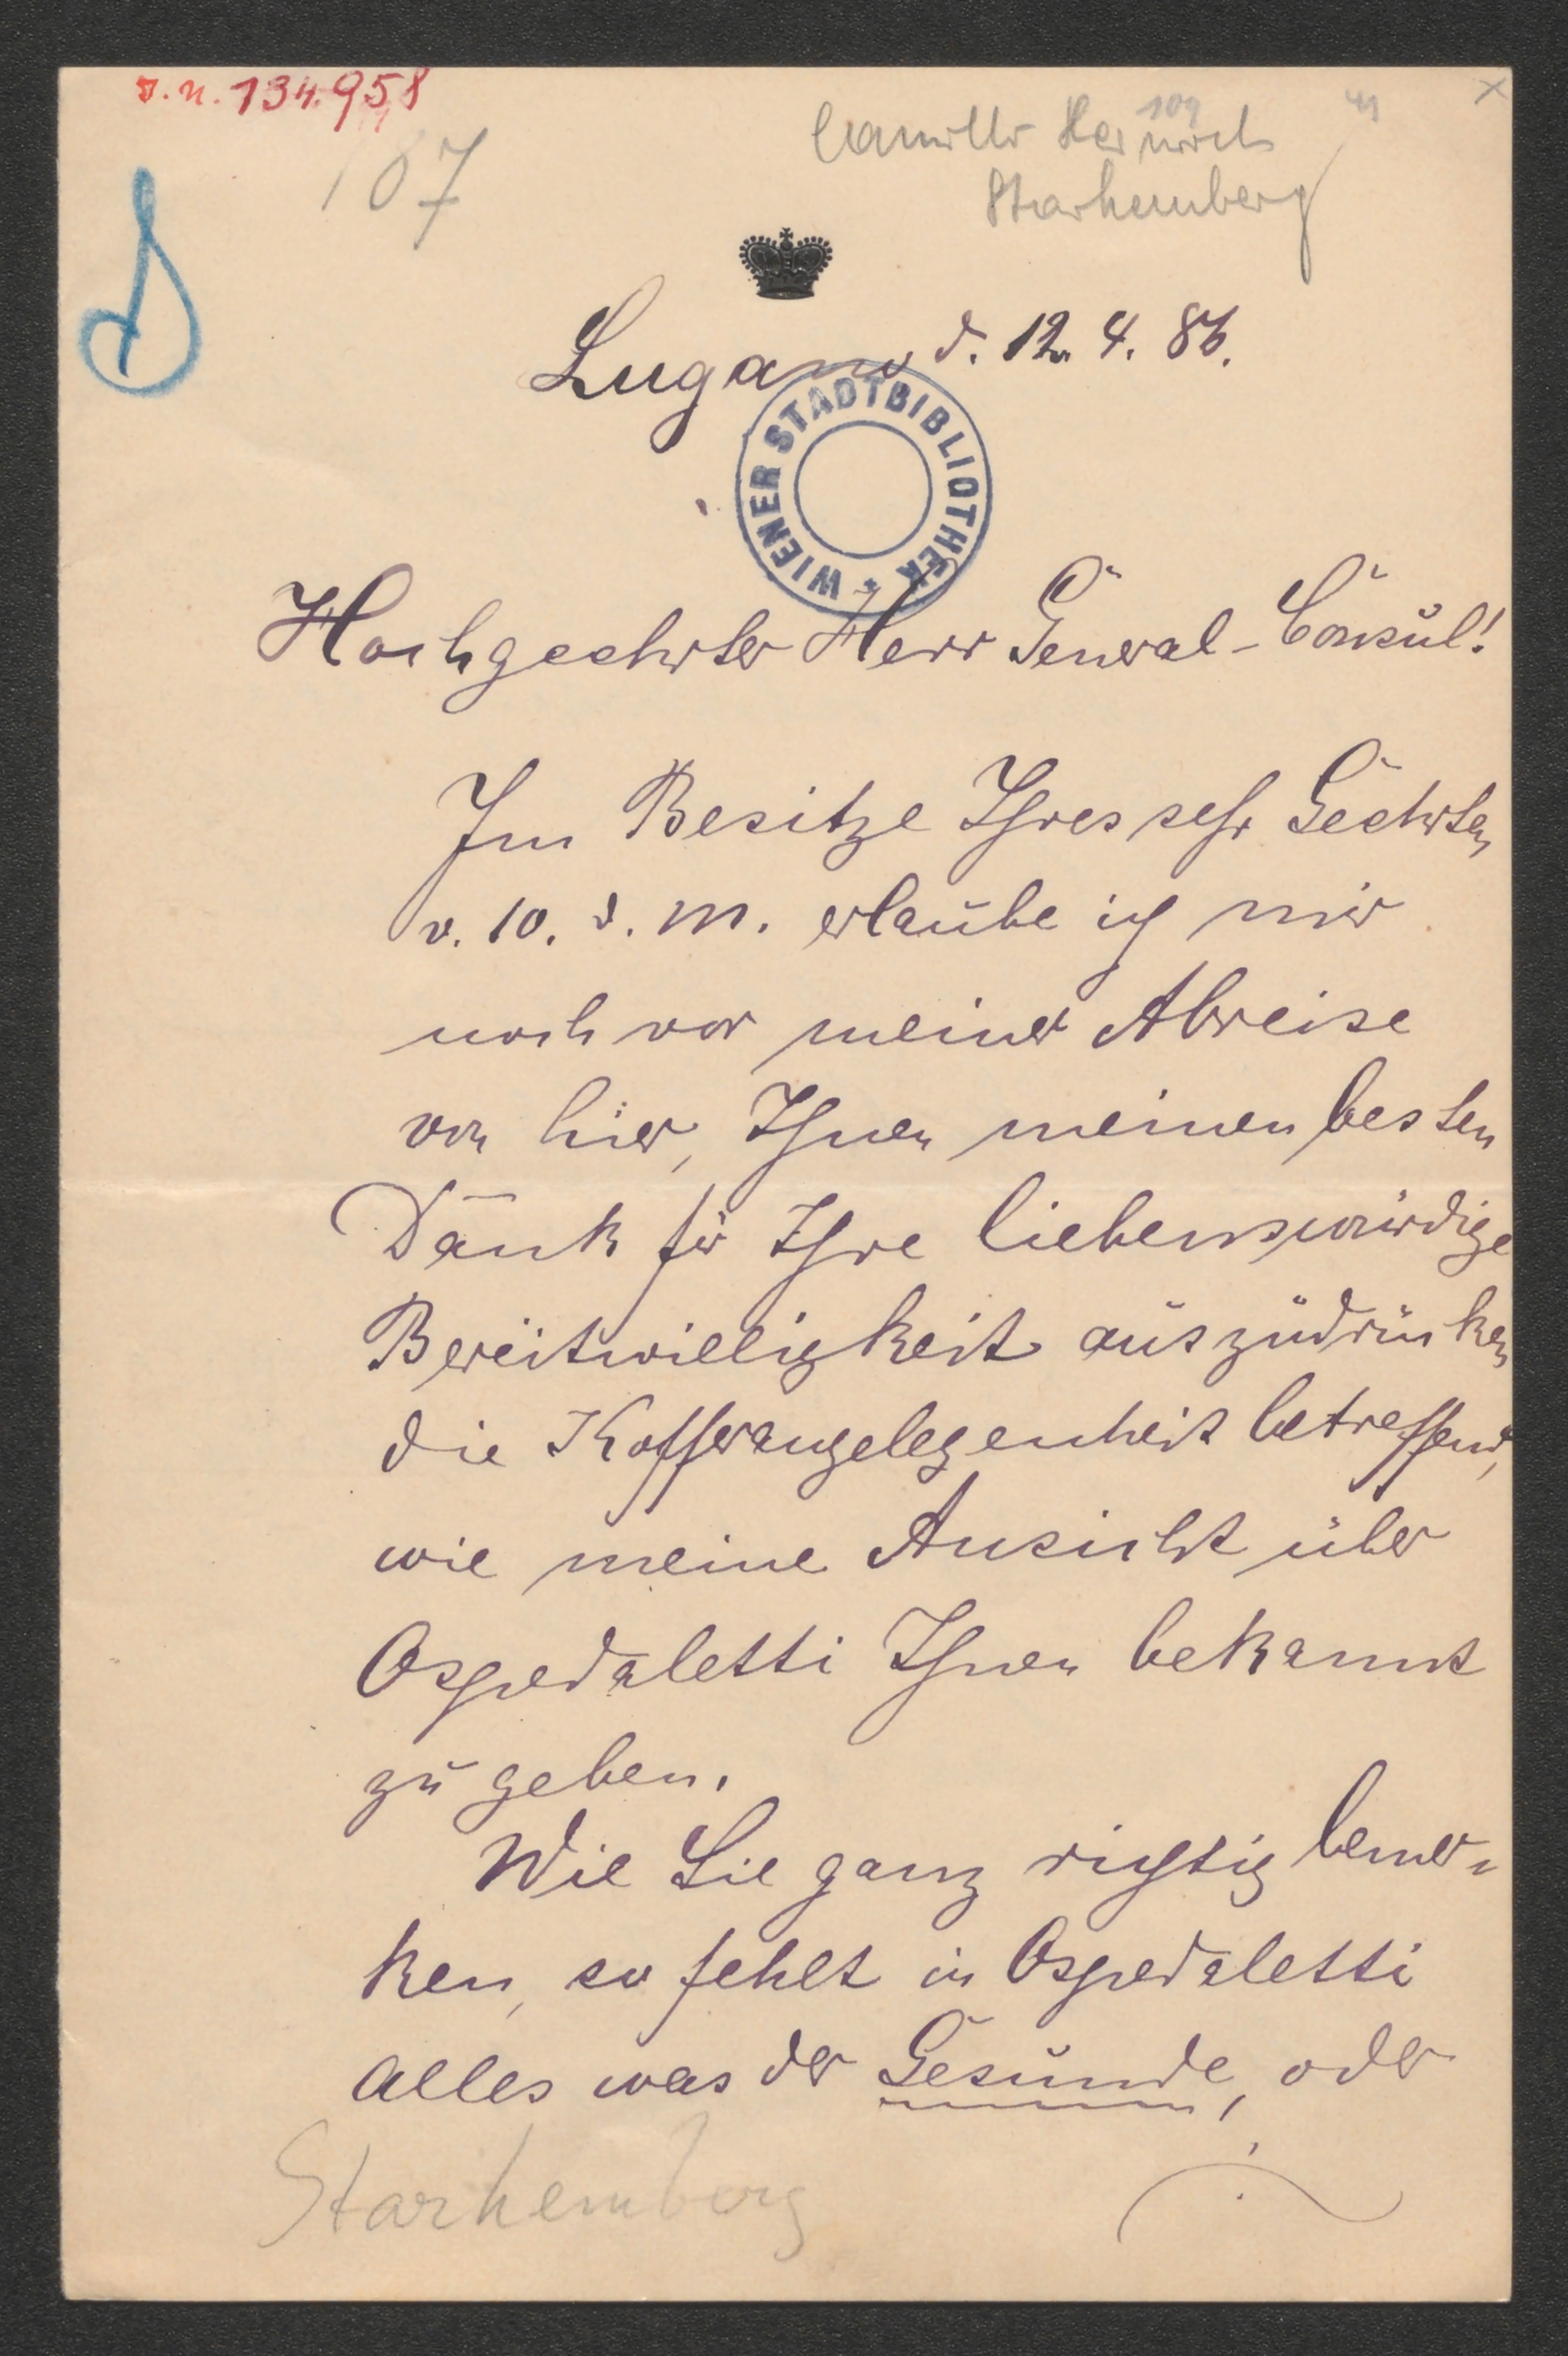 J.N. 134.958
107
109
Camillo Heinrich
Starhemberg
Lugano d. 12. 4. 86.
WIENER STADTBIBLIOTHEK
Hochgeehrter Herr General-Consul!
Im Besitze Ihres sehr Geehrten
v. 10. d. M. erlaube ich mir
noch vor meiner Abreise
von hier, Ihnen meinen besten
Dank für Ihre liebenswürdige
Bereitwilligkeit auszudrücken
die Kofferangelegenheit betreffend,
wie meine Ansicht über
Ospedaletti Ihnen bekannt
zu geben.
Wie Sie ganz richtig bemer-
ken, so fehlt in Ospedaletti
alles was der Gesunde, oder
Starhemberg